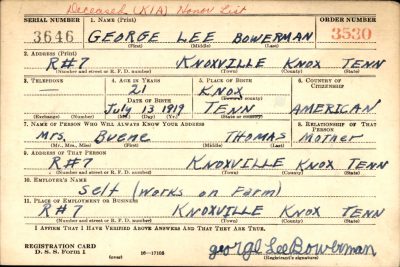 Deceased (KIA) Honor List
SERIAL NUMBER 1. NAME (Print) ORDER NUMBER
3646 GEORGE LEE BOWERMAN 3530
(First) (Middle) (Last)
2. ADDRESS (Print)
R#7 KNOXVILLE KNOX TENN
(Number and street or R. F. D. number) (Town) (County) (State)
3. TELEPHONE 4. AGE IN YEARS 5. PLACE OF BIRTH 6. COUNTRY OF CITIZENSHIP
— 21 KNOX
DATE OF BIRTH (Town or county)
July 13 1919 TENN AMERICAN
(Exchange) (Number) (Mo.) (Day) (Yr.) (State or country)
7. NAME OF PERSON WHO WILL ALWAYS KNOW YOUR ADDRESS 8. RELATIONSHIP OF THAT PERSON
Mrs. THOMAS MOTHER
(Mr., Mrs., Miss) (First) (Middle) (Last)
9. ADDRESS OF THAT PERSON
R#7 KNOXVILLE KNOX TENN
(Number and street or R. F. D. number) (Town) (County) (State)
10. EMPLOYER'S NAME
Self (works on Farm)
11. PLACE OF EMPLOYMENT OR BUSINESS
R#7 KNOXVILLE KNOX TENN
(Number and street or R. F. D. number) (Town) (County) (State)
I AFFIRM THAT I HAVE VERIFIED ABOVE ANSWERS AND THAT THEY ARE TRUE.
REGISTRATION CARD
D. S. S. Form 1 (over) 16—17105
george Lee Bowerman
(Registrant's signature)